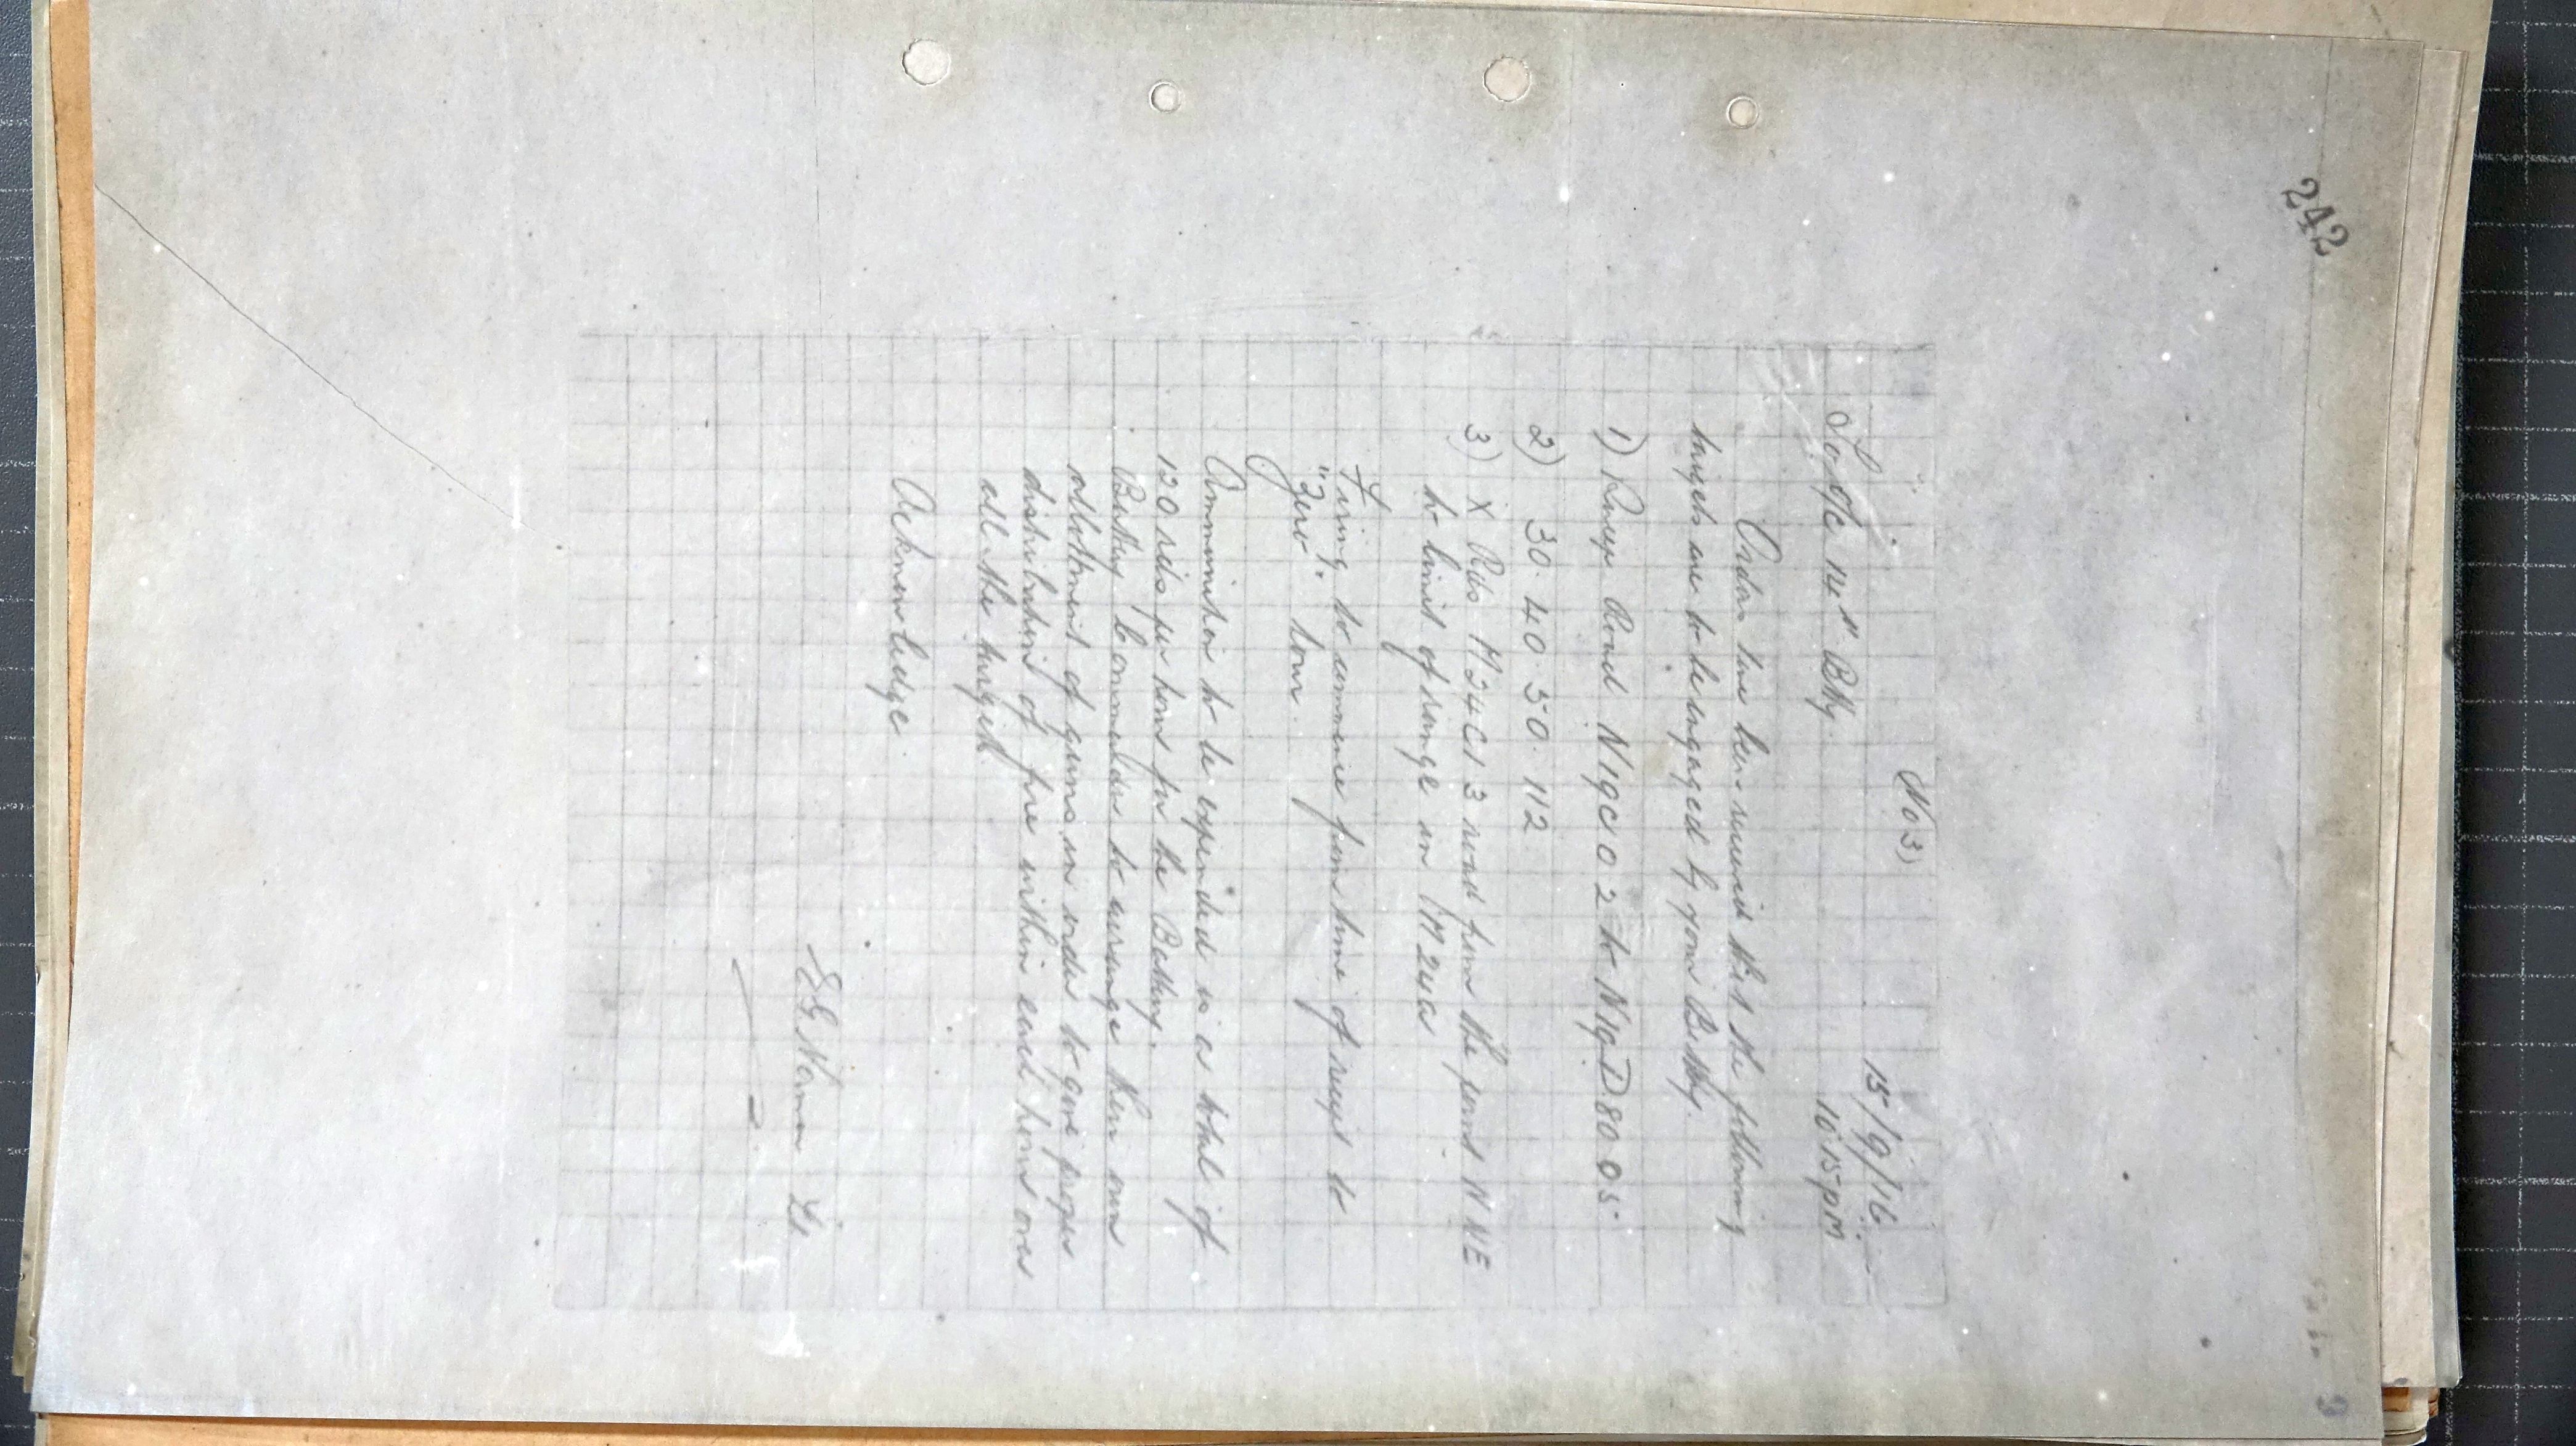 242
No 3)
15/9/16
10.15 pm
To O/C 14" Bty.
Orders have been received that the following
targets are to be engaged by your Battery.
1) Road N19C 0 2 to N19D 80 05.
2) 30. 40. 50. 112
3) X Rds M24C1 3 road from the point NNE
to limit of range in M24a
Firing to commence from time of receipt to
"Zero" hour.
Ammunition to be expended is a total of
120 rds per hour for the Battery.
Battery Commander to arrange their own
allotment of guns in order to give proper
distribution of fire within each hour over
all the targets
Acknowledge.
Lt